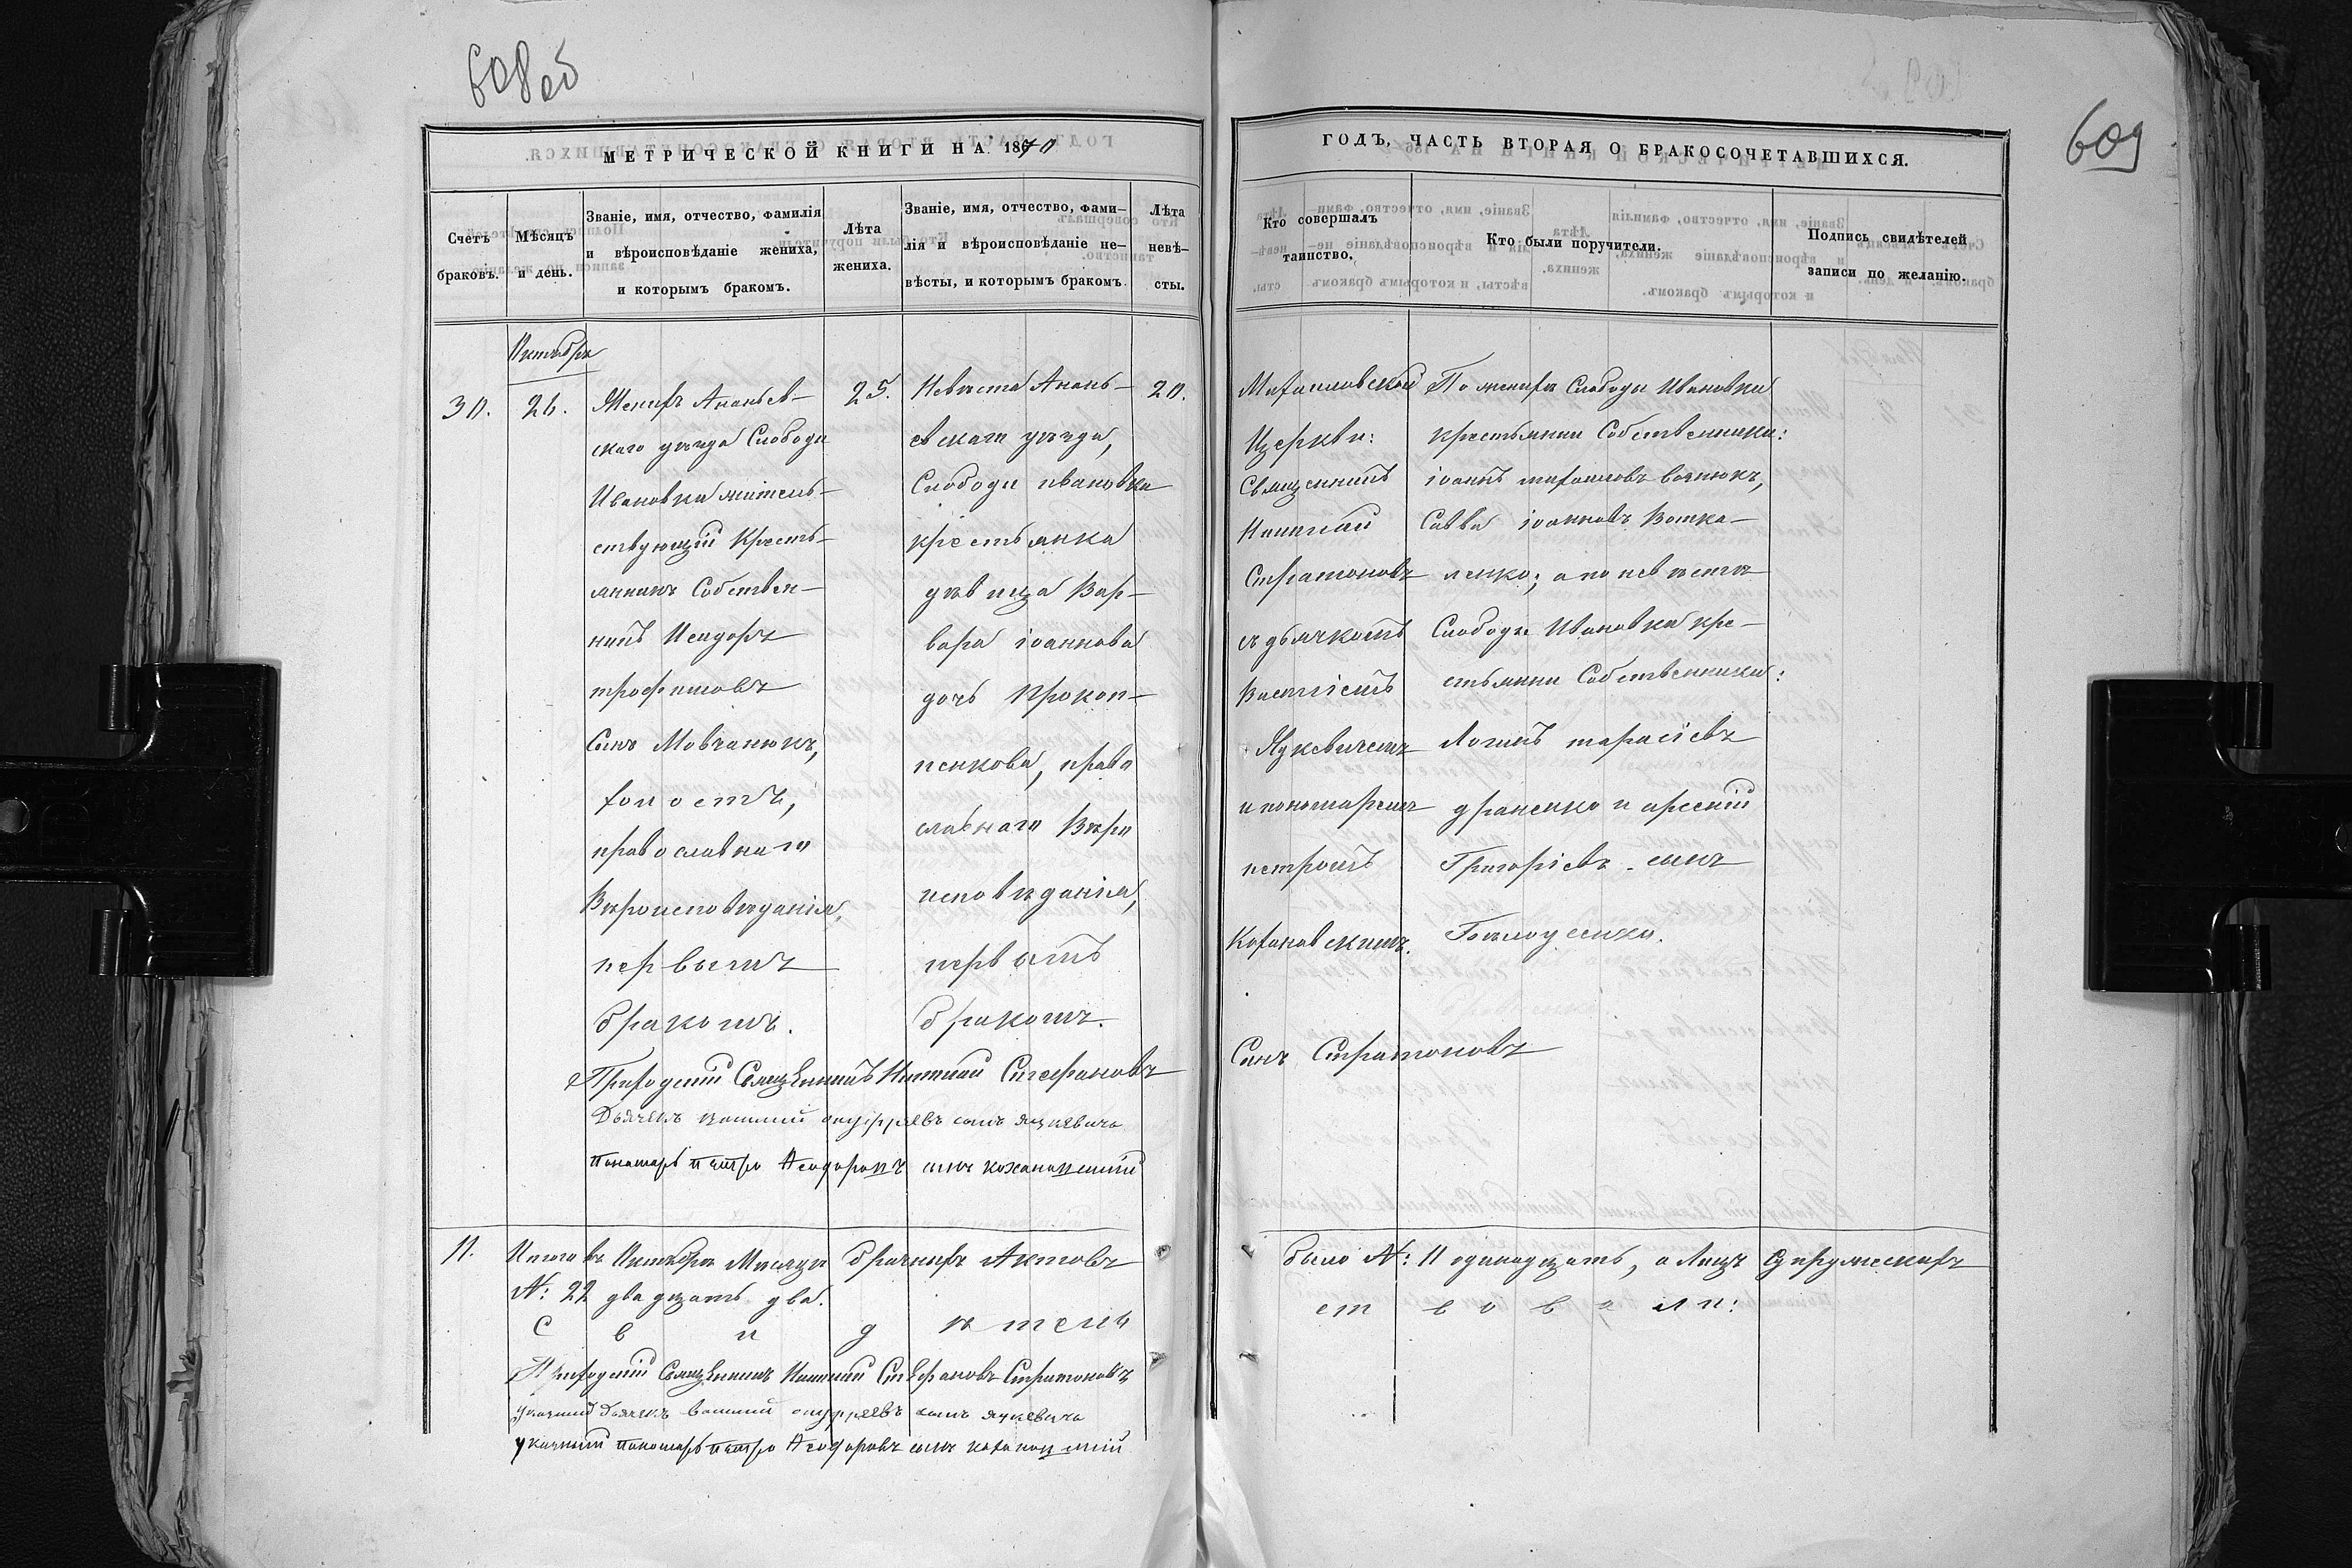 608 об
МЕТРИЧЕСКОЙ КНИГИ НА 1870
Счетъ браковъ.
Мѣсяцъ и день.
Званіе, имя, отчество, фамилія
и вѣроисповѣданіе жениха,
и которымъ бракомъ.
Лѣта жениха.
Званіе, имя, отчество, фами-
лія и вѣроисповѣданіе не-
вѣсты, и которымъ бракомъ
Лѣта невѣ-
сты.
Октября
30.
26.
Женихъ Ананьев-
скаго уѣзда Слободи
Ивановки жітель-
ствующій Кресть-
янинъ Собствен-
никъ Исидоръ
трофимовъ
Сынъ Мовчанюкъ,
холостъ,
православнаго
Вѣроисповѣданія,
первымъ
бракомъ.
25.
Невѣста Анань-
евскаго уѣзда,
Слободи ивановки
крестьянка
дѣвица Вар-
вара іоаннова
дочь Прокоп-
пенкова, право
славнаго Вѣро
исповѣданія,
первымъ
бракомъ.
20.
Приходскій Священникъ Николай Стефановъ
Дьячекъ василий онуфріевъ сынъ яцкевичъ
Пономарь Петро Ѳеодоровъ сынъ кохановский
11.
Итого въ Октябрѣ Мѣсяцѣ брачныхъ Актовъ
№: 22 двадцать два.
Свидѣтели
Приходскій Священникъ Николай Стефановъ Стратоновъ
указний дьячекъ василий онуфріевъ сынъ яцкевичъ
указний пономарь петро Ѳеодоровъ сынъ кохановский
609
ГОДЪ, ЧАСТЬ ВТОРАЯ О БРАКОСОЧЕТАВШИХСЯ.
Кто совершалъ
таинство.
Кто были поручители.
Подпись свидѣтелей
записи по желанію.
Михаиловской
Церкви:
Священникъ
Николай
Стратоновъ
съ дьячкомъ
Василіемъ
Яцкевичемъ
и пономаремъ
петромъ
Кохановскимъ.
По женихѣ Слободы Ивановки
крестьяни Собственники:
іоаннъ михаиловъ
Савва іоанновъ
а по невѣстѣ
Слободы Ивановки кре-
стьяни Собственники:
тарасіевъ
и арсеній
Григоріевъ сынъ
Сынъ Стратоновъ
было №: 11 одинадцать, а Лицъ Супружескихъ